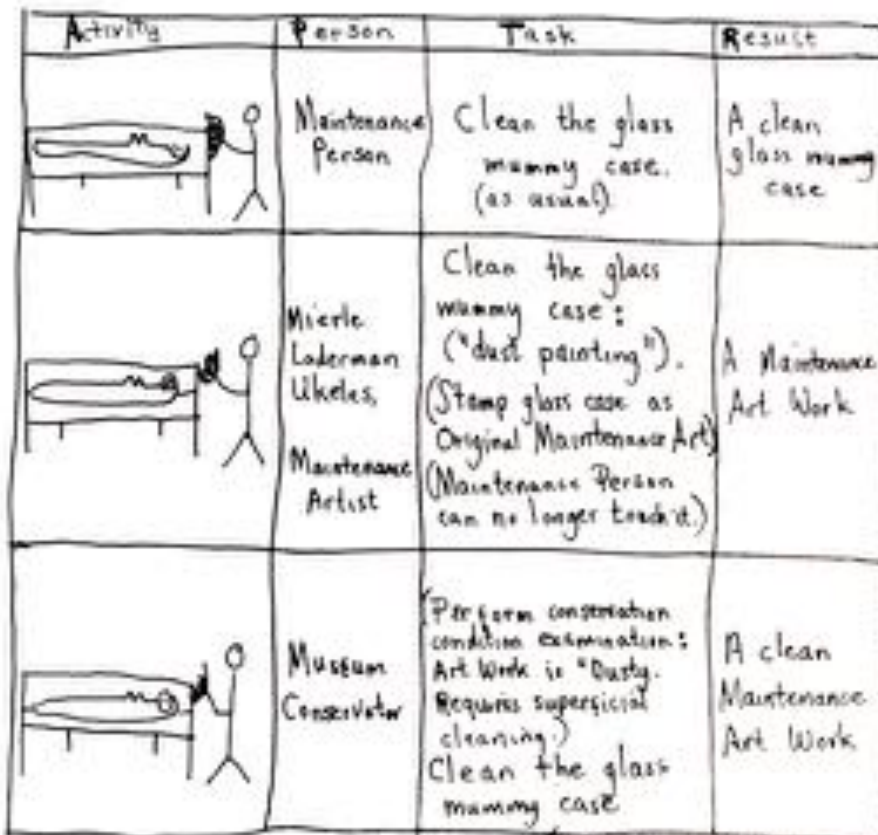 Activity Person Task Result
Maintenance
Person
Clean the glass
mummy case.
(as usual)
A clean
glass mummy
case
Mierle
Laderman
Ukeles,
Maintenance
Artist
Clean the glass
mummy case:
("dust painting").
(Stamp glass case as
Original Maintenance Art)
(Maintenance Person
can no longer touch it.)
A Maintenance
Art Work
Museum
Conservator
(Perform conservation
condition examination:
Art Work is "Dusty.
Requires superficial
cleaning.)
Clean the glass
mummy case
A clean
Maintenance
Art Work